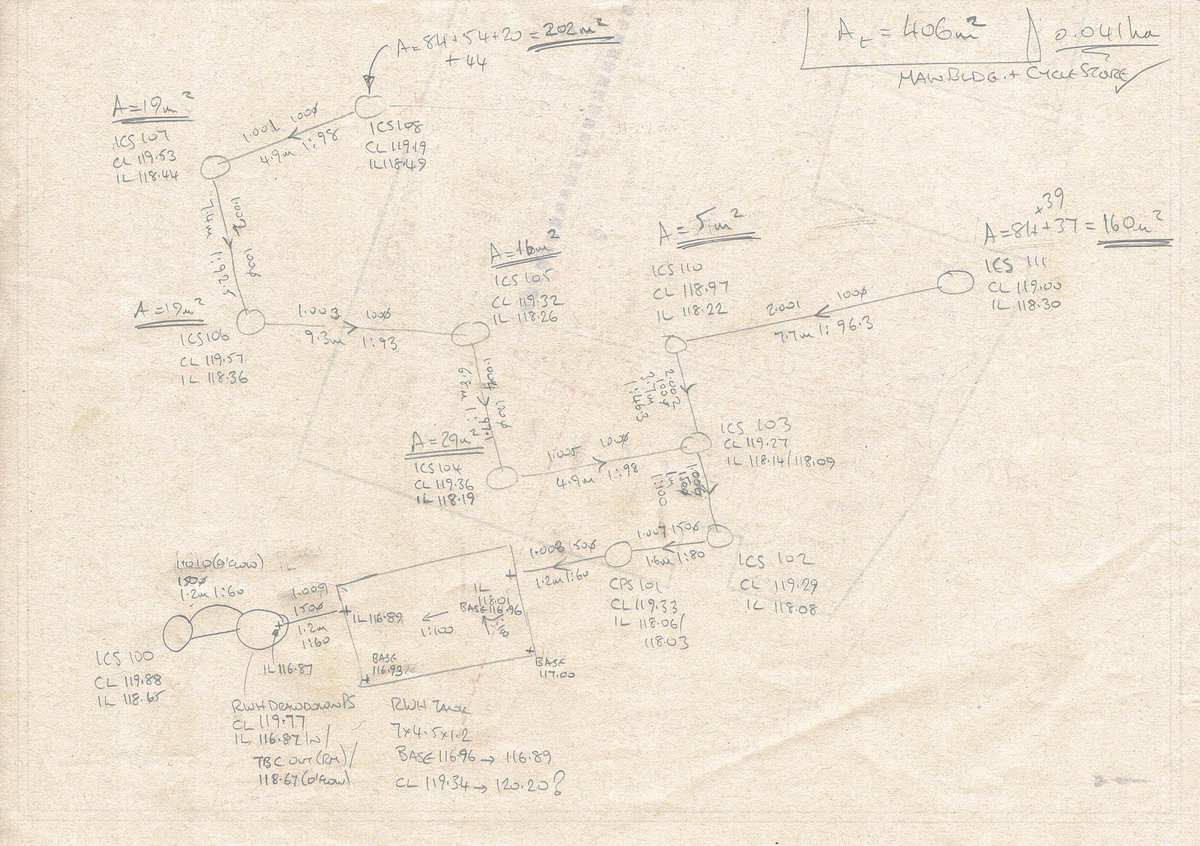 A=84+54+20=202m²
+44
Aₜ=406m²
0.041ha
MAIN BLDG. + CYCLE STORE ✓
A=19m²
ICS 107
CL 119.53
IL 118.44
1.001 100ø
4.9m 1:98
ICS 108
CL 119.19
IL 118.49
1.002 100ø
1:92.5
A=19m²
ICS 106
CL 119.57
IL 118.36
1.003 100ø
9.3m 1:93
A=16m²
ICS 105
CL 119.32
IL 118.26
A=51m²
ICS 110
CL 118.97
IL 118.22
+39
A=84+37=160m²
ICS 111
CL 119.00
IL 118.30
2.001 100ø
7.7m 1:96.3
2.002
100ø
3.7m
1:46.3
1.004 100ø
6.8m 1:97.1
A=29m²
ICS 104
CL 119.36
IL 118.19
1.005 100ø
4.9m 1:98
ICS 103
CL 119.27
IL 118.14/118.09
1.006
150ø
1:100
1.007 150ø
1.6m 1:80
ICS 102
CL 119.29
IL 118.08
1.008 150ø
1.2m 1:60
CPS 101
CL 119.33
IL 118.06/
118.03
1.010 (O'FLOW)
150ø
1.2m 1:60
1.009
150ø
1.2m
1:60
IL 116.89
1:100
IL
118.01
BASE 116.96
1:110
BASE
116.93
BASE
117.00
IL 116.87
ICS 100
CL 119.88
IL 118.65
RWH DRAWDOWN PS
CL 119.77
IL 116.87 IN/
TBC OUT (RM)/
118.67 (O'FLOW)
RWH TANK
7×4.5×1.2
BASE 116.96 → 116.89
CL 119.34 → 120.20?